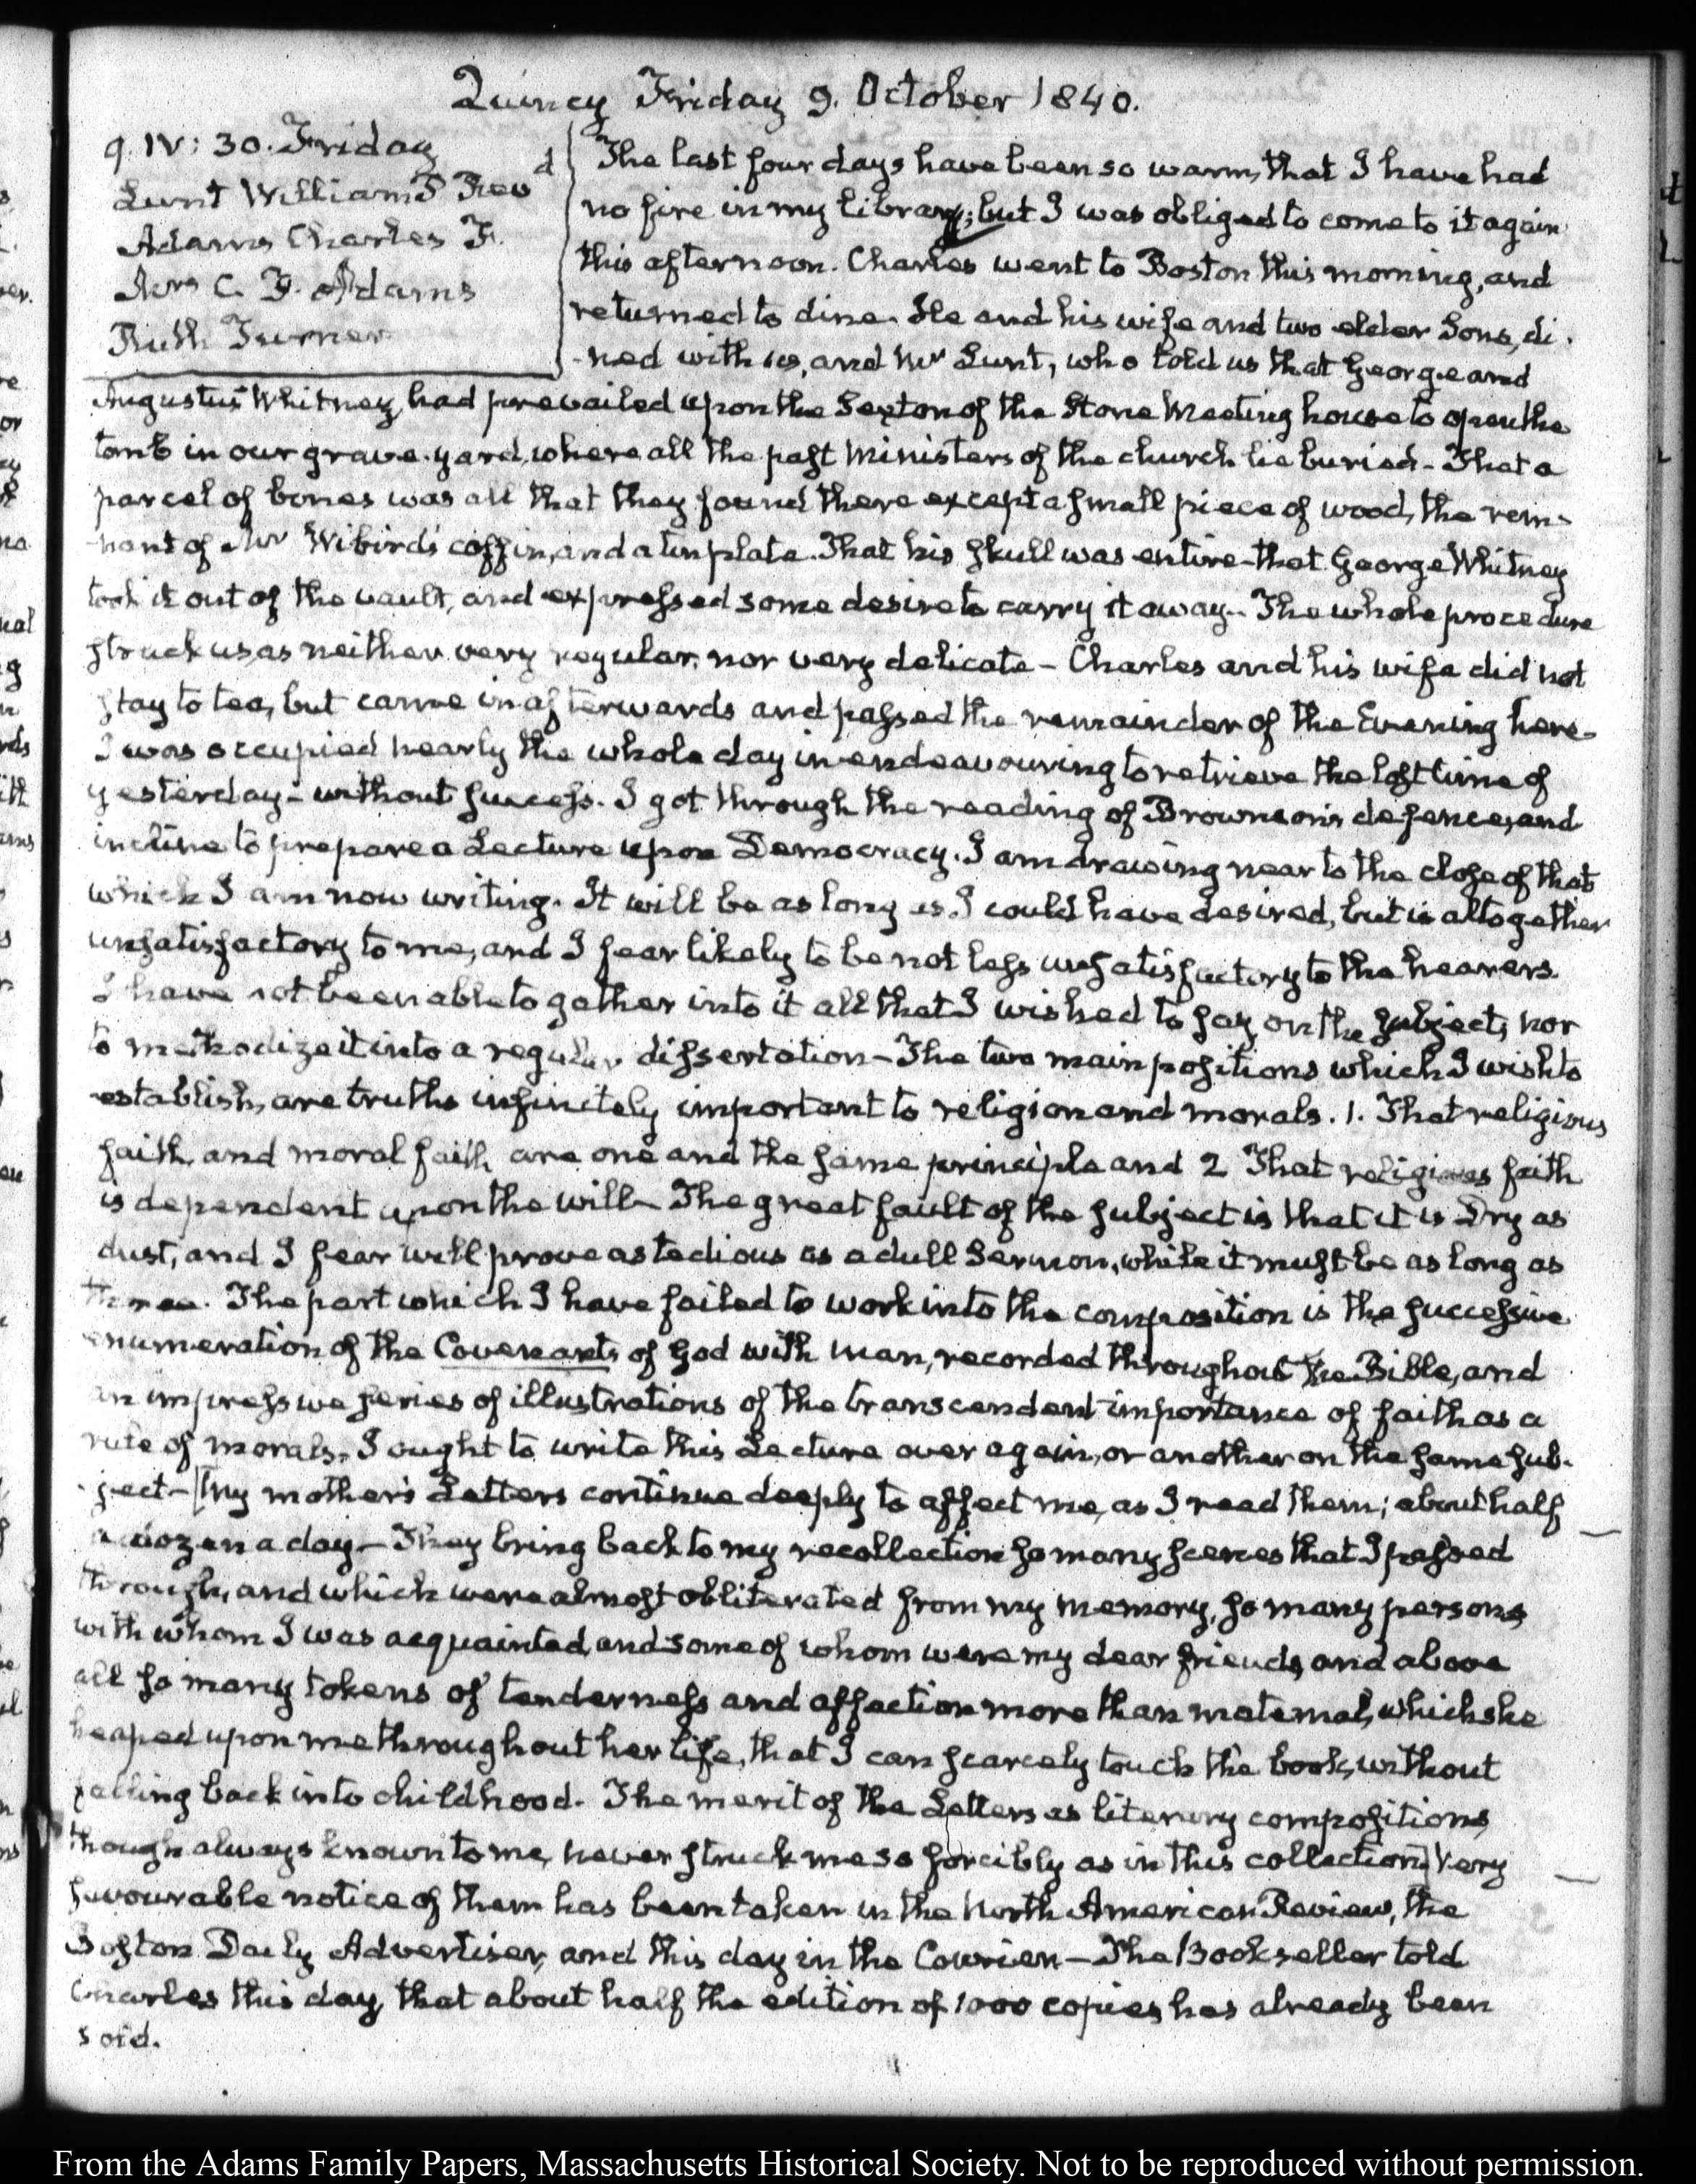 Quincy Friday 9. October 1840.
9. IV: 30. Friday
Lunt William P Revd
Adams Charles F.
Mrs C. F. Adams
Ruth Turner
The last four days have been so warm, that I have had
no fire in my library; but I was obliged to come to it again
this afternoon. Charles went to Boston this morning, and
returned to dine. He and his wife and two elder Sons, di-
-ned with us, and Mr Lunt, who told us that George and
Augustus Whitney, had prevailed upon the Sexton of the Stone Meeting house to open the
tomb in our grave-yard, where all the past Ministers of the church lie buried - That a
parcel of bones was all that they found there except a small piece of wood, the rem-
-nant of Mr Wibird's coffin, and a tin plate. That his skull was entire - that George Whitney
took it out of the vault, and expressed some desire to carry it away - The whole procedure
struck us as neither very regular, nor very delicate - Charles and his wife did not
stay to tea, but came in afterwards and passed the remainder of the Evening here.
I was occupied nearly the whole day in endeavouring to retrieve the lost time of
yesterday - without success. I got through the reading of Brownson's defence, and
incline to prepare a Lecture upon Democracy. I am drawing near to the close of that
which I am now writing. It will be as long as I could have desired, but is altogether
unsatisfactory to me, and I fear likely to be not less unsatisfactory to the hearers.
I have not been able to gather into it all that I wished to say on the subject, nor
to methodize it into a regular dissertation - The two main positions which I wish to
establish, are truths infinitely important to religion and morals. 1. That religious
faith, and moral faith are one and the same principle and 2 That religious faith
is dependent upon the will - The great fault of the subject is that it is Dry as
dust, and I fear will prove as tedious as a dull Sermon, while it must be as long as
three. The part which I have failed to work into the composition is the successive
enumeration of the Covenants of God with man, recorded throughout the Bible, and
an impressive series of illustrations of the transcendent importance of faith as a
rule of morals. I ought to write this Lecture over again, or another on the same sub-
-ject - [My mother's Letters continue deeply to affect me, as I read them; about half
a dozen a day - They bring back to my recollection so many scenes that I passed
through, and which were almost obliterated from my memory, so many persons
with whom I was acquainted, and some of whom were my dear friends, and above
all so many tokens of tenderness and affection more than maternal, which she
heaped upon me throughout her life, that I can scarcely touch the book, without
falling back into childhood. The merit of the Letters as literary compositions,
though always known to me, never struck me so forcibly as in this collection] Very
favourable notice of them has been taken in the North American Review, the
Boston Daily Advertiser, and this day in the Courier - The Bookseller told
Charles this day, that about half the edition of 1000 copies has already been
sold.
From the Adams Family Papers, Massachusetts Historical Society. Not to be reproduced without permission.